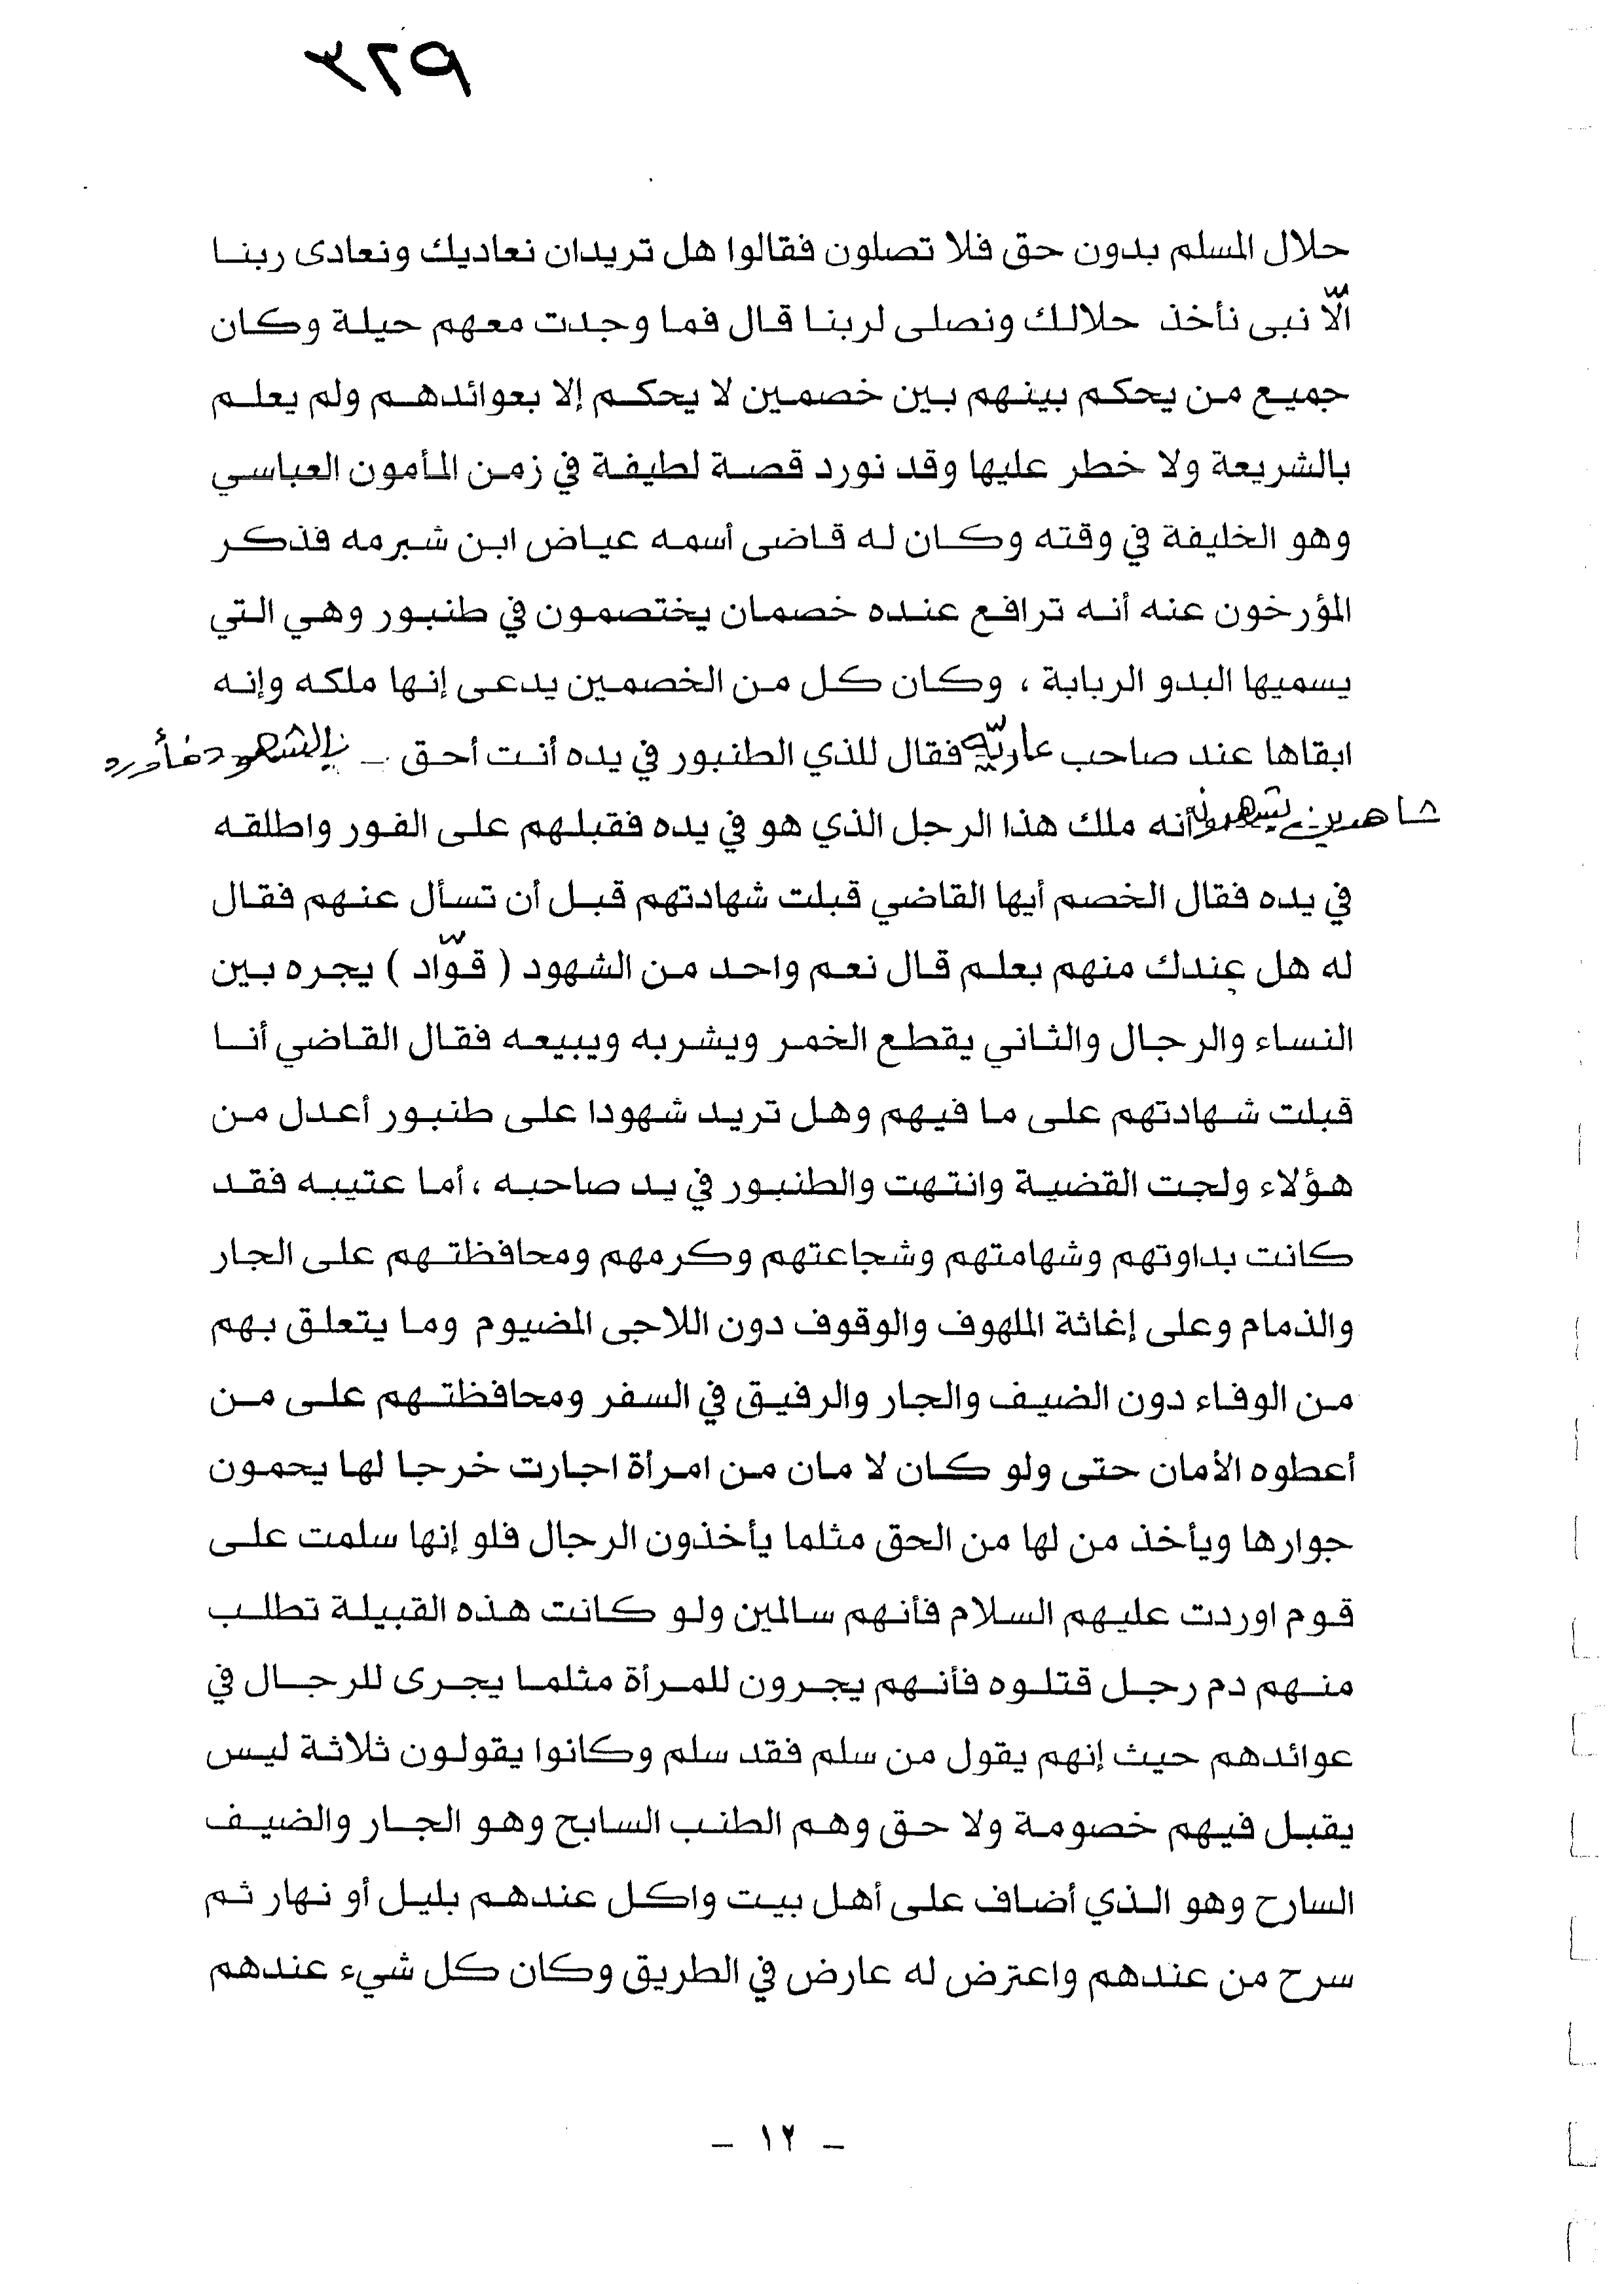 ٣٢٩
حلال المسلم بدون حق فلا تصلون فقالوا هل تريدان نعاديك ونعادى ربنا
الّا نبى نأخذ حلالك ونصلى لربنا قال فما وجدت معهم حيلة وكان
جميع من يحكم بينهم بين خصمين لا يحكم إلا بعوائدهم ولم يعلم
بالشريعة ولا خطر عليها وقد نورد قصة لطيفة في زمن المأمون العباسي
وهو الخليفة في وقته وكان له قاضى أسمه عياض ابن شبرمه فذكر
المؤرخون عنه أنه ترافع عنده خصمان يختصمون في طنبور وهي التي
يسميها البدو الربابة ، وكان كل من الخصمين يدعى إنها ملكه وإنه
ابقاها عند صاحب عاريّه فقال للذي الطنبور في يده أنت أحق – بالشهود فأورد
شاهدين يشهدون أنه ملك هذا الرجل الذي هو في يده فقبلهم على الفور واطلقه
في يده فقال الخصم أيها القاضي قبلت شهادتهم قبل أن تسأل عنهم فقال
له هل عندك منهم بعلم قال نعم واحد من الشهود ( قوّاد ) يجره بين
النساء والرجال والثاني يقطع الخمر ويشربه ويبيعه فقال القاضي أنا
قبلت شهادتهم على ما فيهم وهل تريد شهودا على طنبور أعدل من
هؤلاء ولجت القضية وانتهت والطنبور في يد صاحبه ، أما عتيبه فقد
كانت بداوتهم وشهامتهم وشجاعتهم وكرمهم ومحافظتهم على الجار
والذمام وعلى إغاثة الملهوف والوقوف دون اللاجى المضيوم وما يتعلق بهم
من الوفاء دون الضيف والجار والرفيق في السفر ومحافظتهم على من
أعطوه الأمان حتى ولو كان لا مان من امرأة اجارت خرجا لها يحمون
جوارها ويأخذ من لها من الحق مثلما يأخذون الرجال فلو إنها سلمت على
قوم اوردت عليهم السلام فأنهم سالمين ولو كانت هذه القبيلة تطلب
منهم دم رجل قتلوه فأنهم يجرون للمرأة مثلما يجرى للرجال في
عوائدهم حيث إنهم يقول من سلم فقد سلم وكانوا يقولون ثلاثة ليس
يقبل فيهم خصومة ولا حق وهم الطنب السابح وهو الجار والضيف
السارح وهو الذي أضاف على أهل بيت واكل عندهم بليل أو نهار ثم
سرح من عندهم واعترض له عارض في الطريق وكان كل شيء عندهم
– ١٢ –